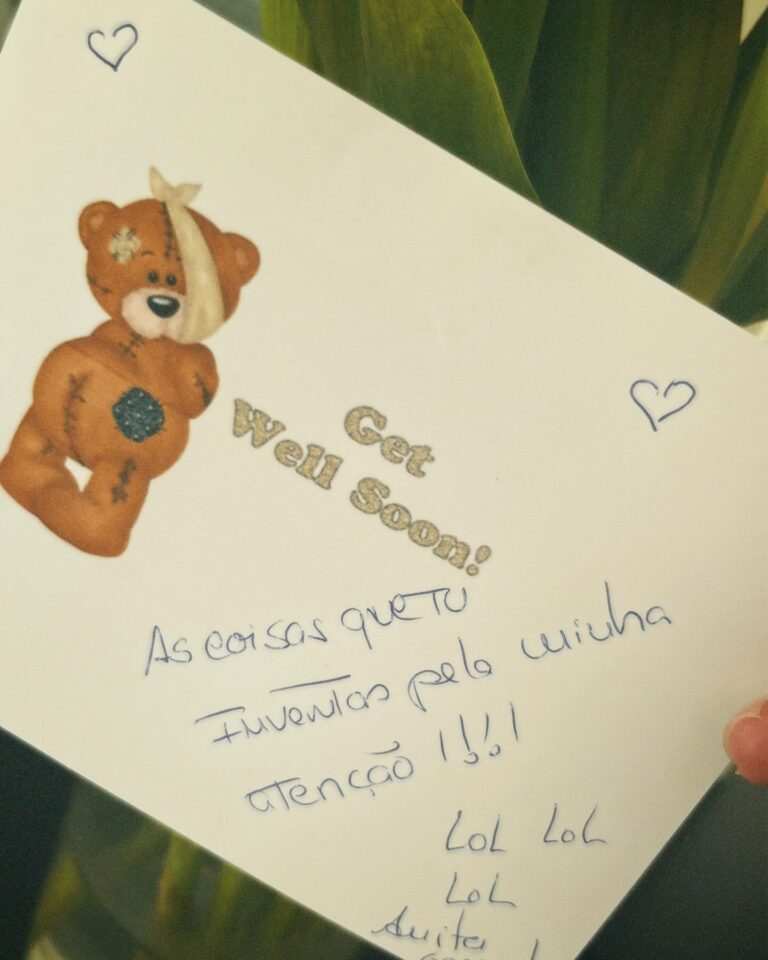 Get
Well Soon!
As coisas que tu
Inventas pela minha
atenção !!!!
LoL LoL
LoL
Anita